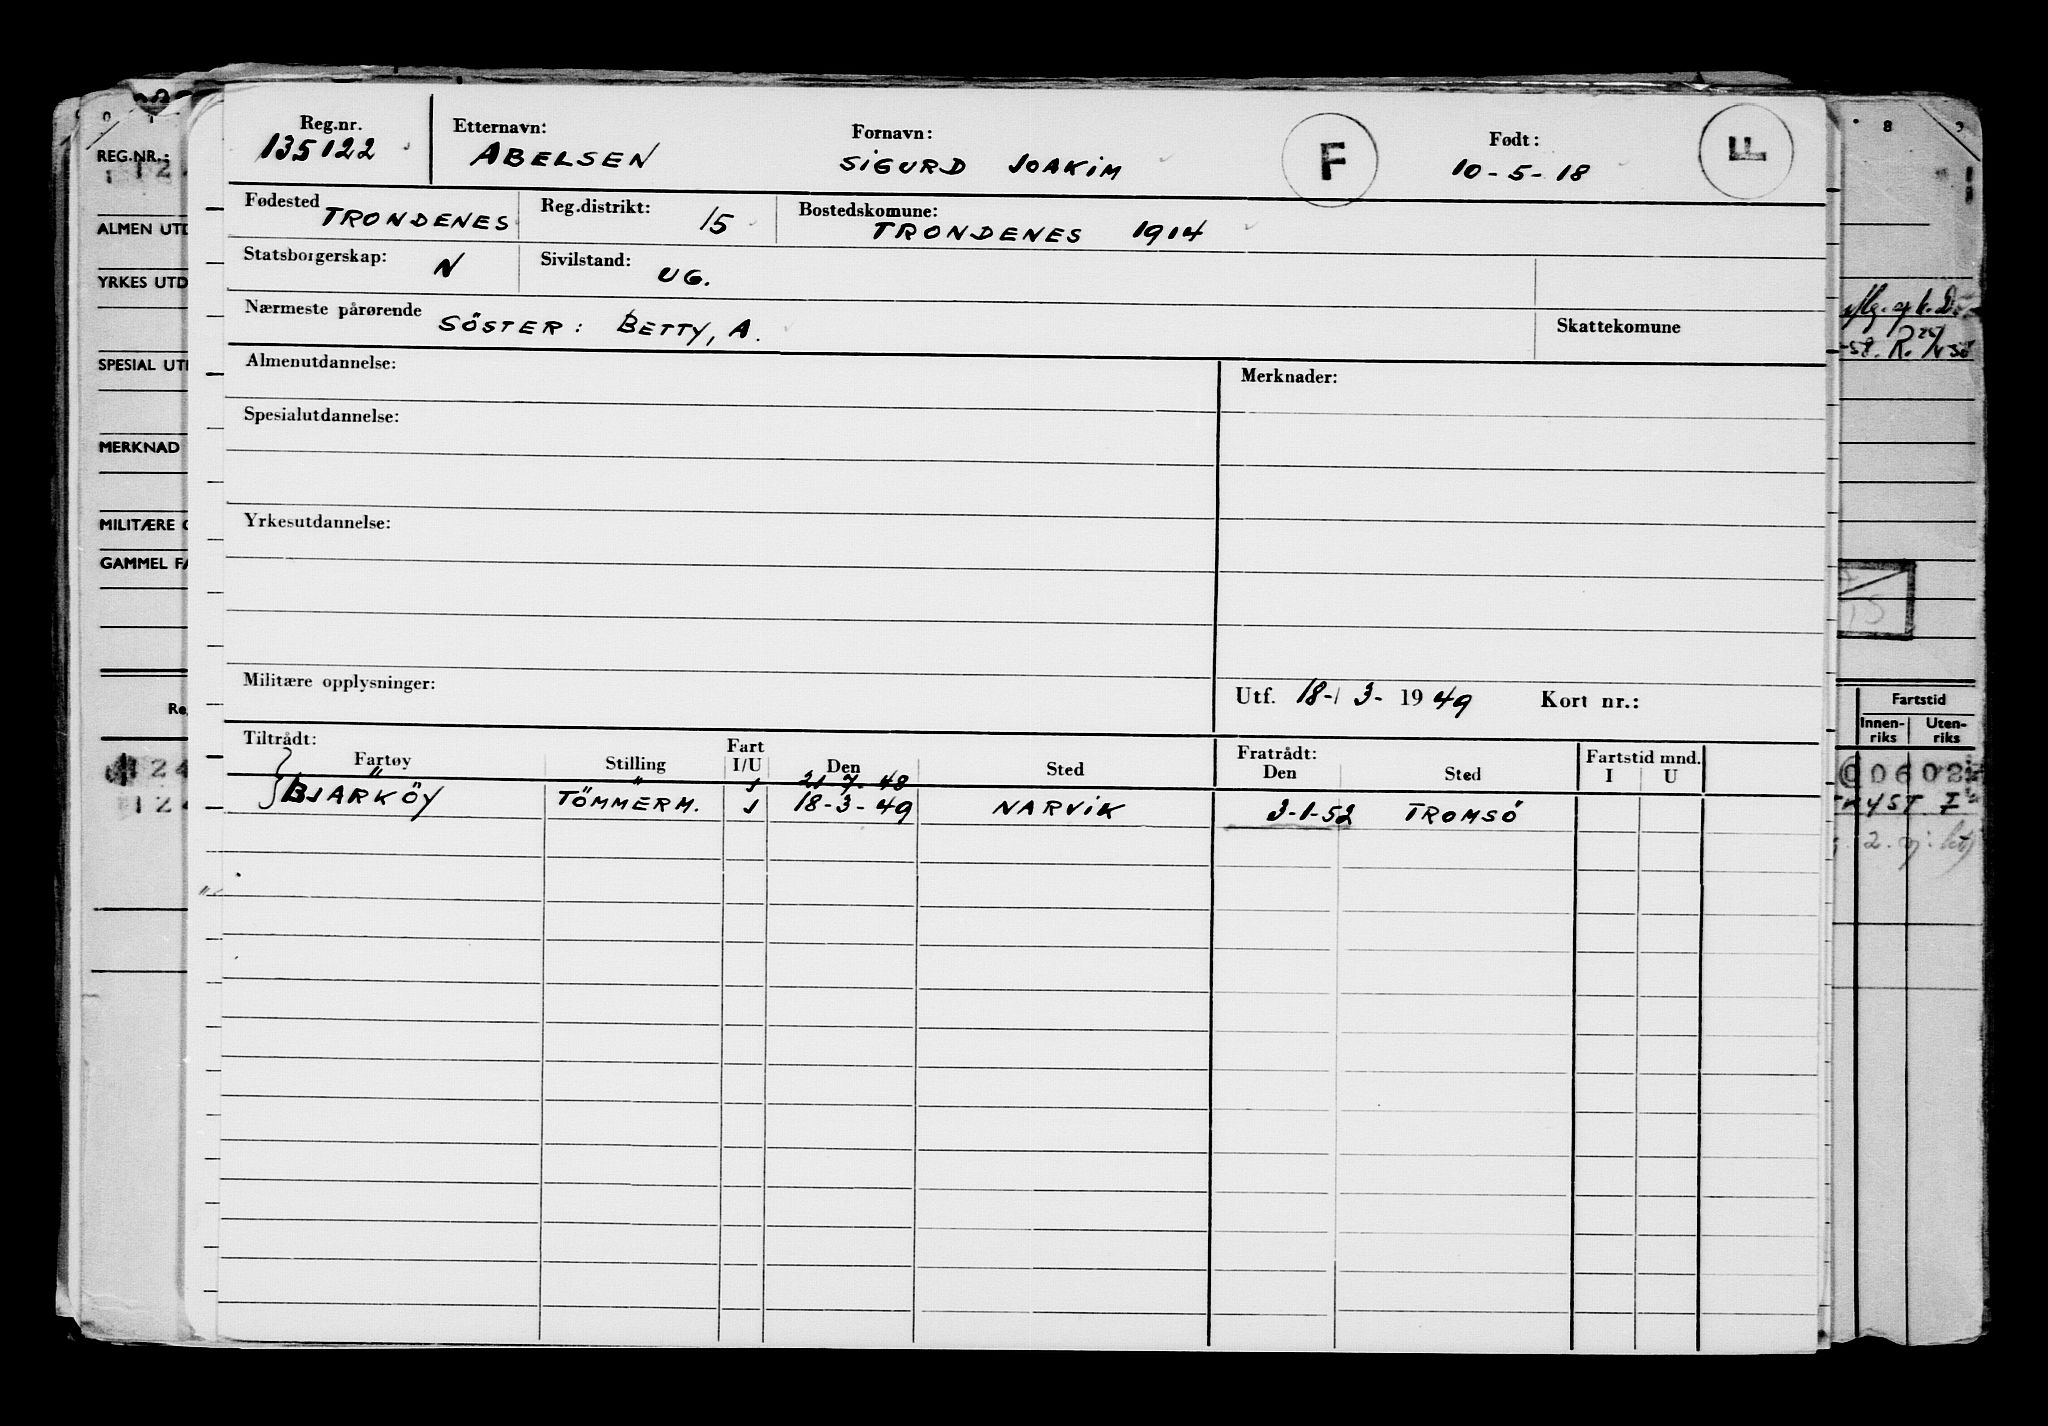 Reg.nr. Etternavn: Fornavn: F Født: F
135122 ABELSEN SIGURD JOAKIM 10-5-18
Fødested TRONDENES Reg.distrikt: 15 Bostedskomune: TRONDENES 1914
Statsborgerskap: N Sivilstand: UG.
Nærmeste pårørende SÖSTER: BETTY, A. Skattekomune
Almenutdannelse: Merknader:
Spesialutdannelse:
Yrkesutdannelse:
Militære opplysninger: Utf. 18-3-1949 Kort nr.:
Tiltrådt: Fart Fratrådt: Fartstid mnd.
Fartøy Stilling I/U Den Sted Den Sted I U
" " I 21 7. 48
BJARKÖY TÖMMERM. I 18-3-49 NARVIK 3-1-52 TROMSÖ
REG.NR.:
ALMEN UTD
YRKES UTD
SPESIAL UT
MERKNAD
MILITÆRE
GAMMEL
8 9
R.
15
Fartstid
Innen-riks Uten-riks